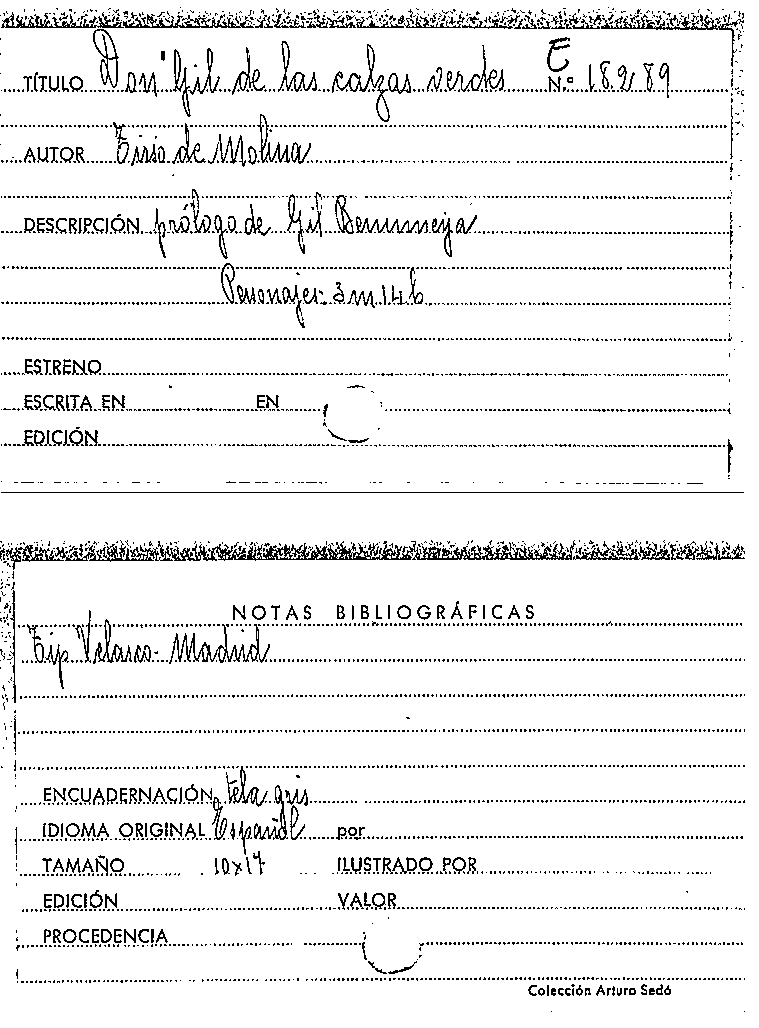 TÍTULO Don Gil de las calzas verdes E N.º 18289
AUTOR Tirso de Molina
DESCRIPCIÓN prólogo de Gil Benumeya
Personajes: 3 m. 14 h.
ESTRENO
ESCRITA EN EN
EDICIÓN
NOTAS BIBLIOGRÁFICAS
Tip Velasco - Madrid
ENCUADERNACIÓN tela gris
IDIOMA ORIGINAL Español por
TAMAÑO 10x17 ILUSTRADO POR
EDICIÓN VALOR
PROCEDENCIA
Colección Arturo Sedó